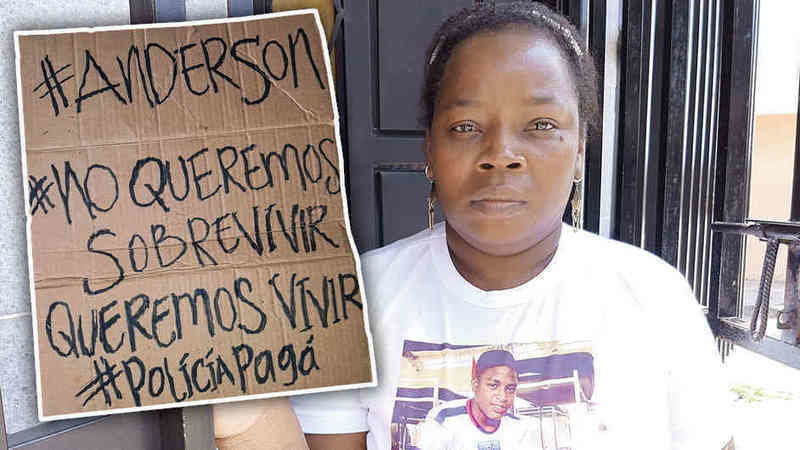 #ANDERSON
#NO QUEREMOS
SOBREVIVIR
QUEREMOS VIVIR
#PolícíaPagá